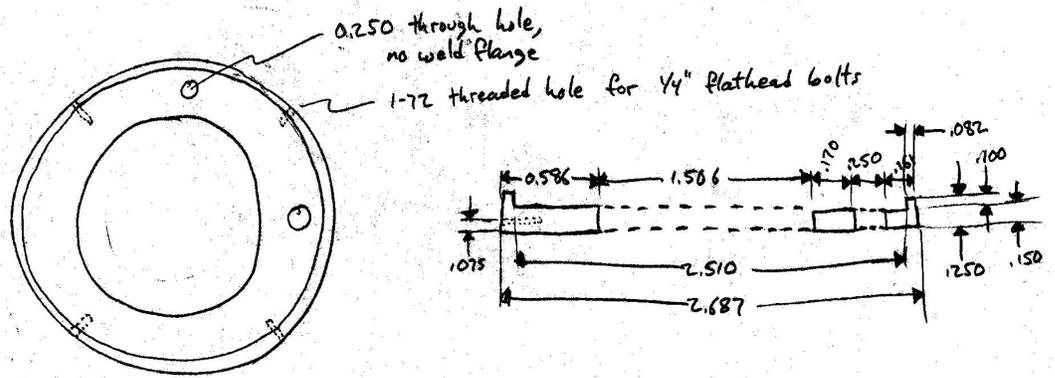 0.250 through hole,
no weld flange
1-72 threaded hole for 1/4" flathead bolts
.082
.170
.250
.100
0.586
1.506
.075
2.510
.250
.150
2.687